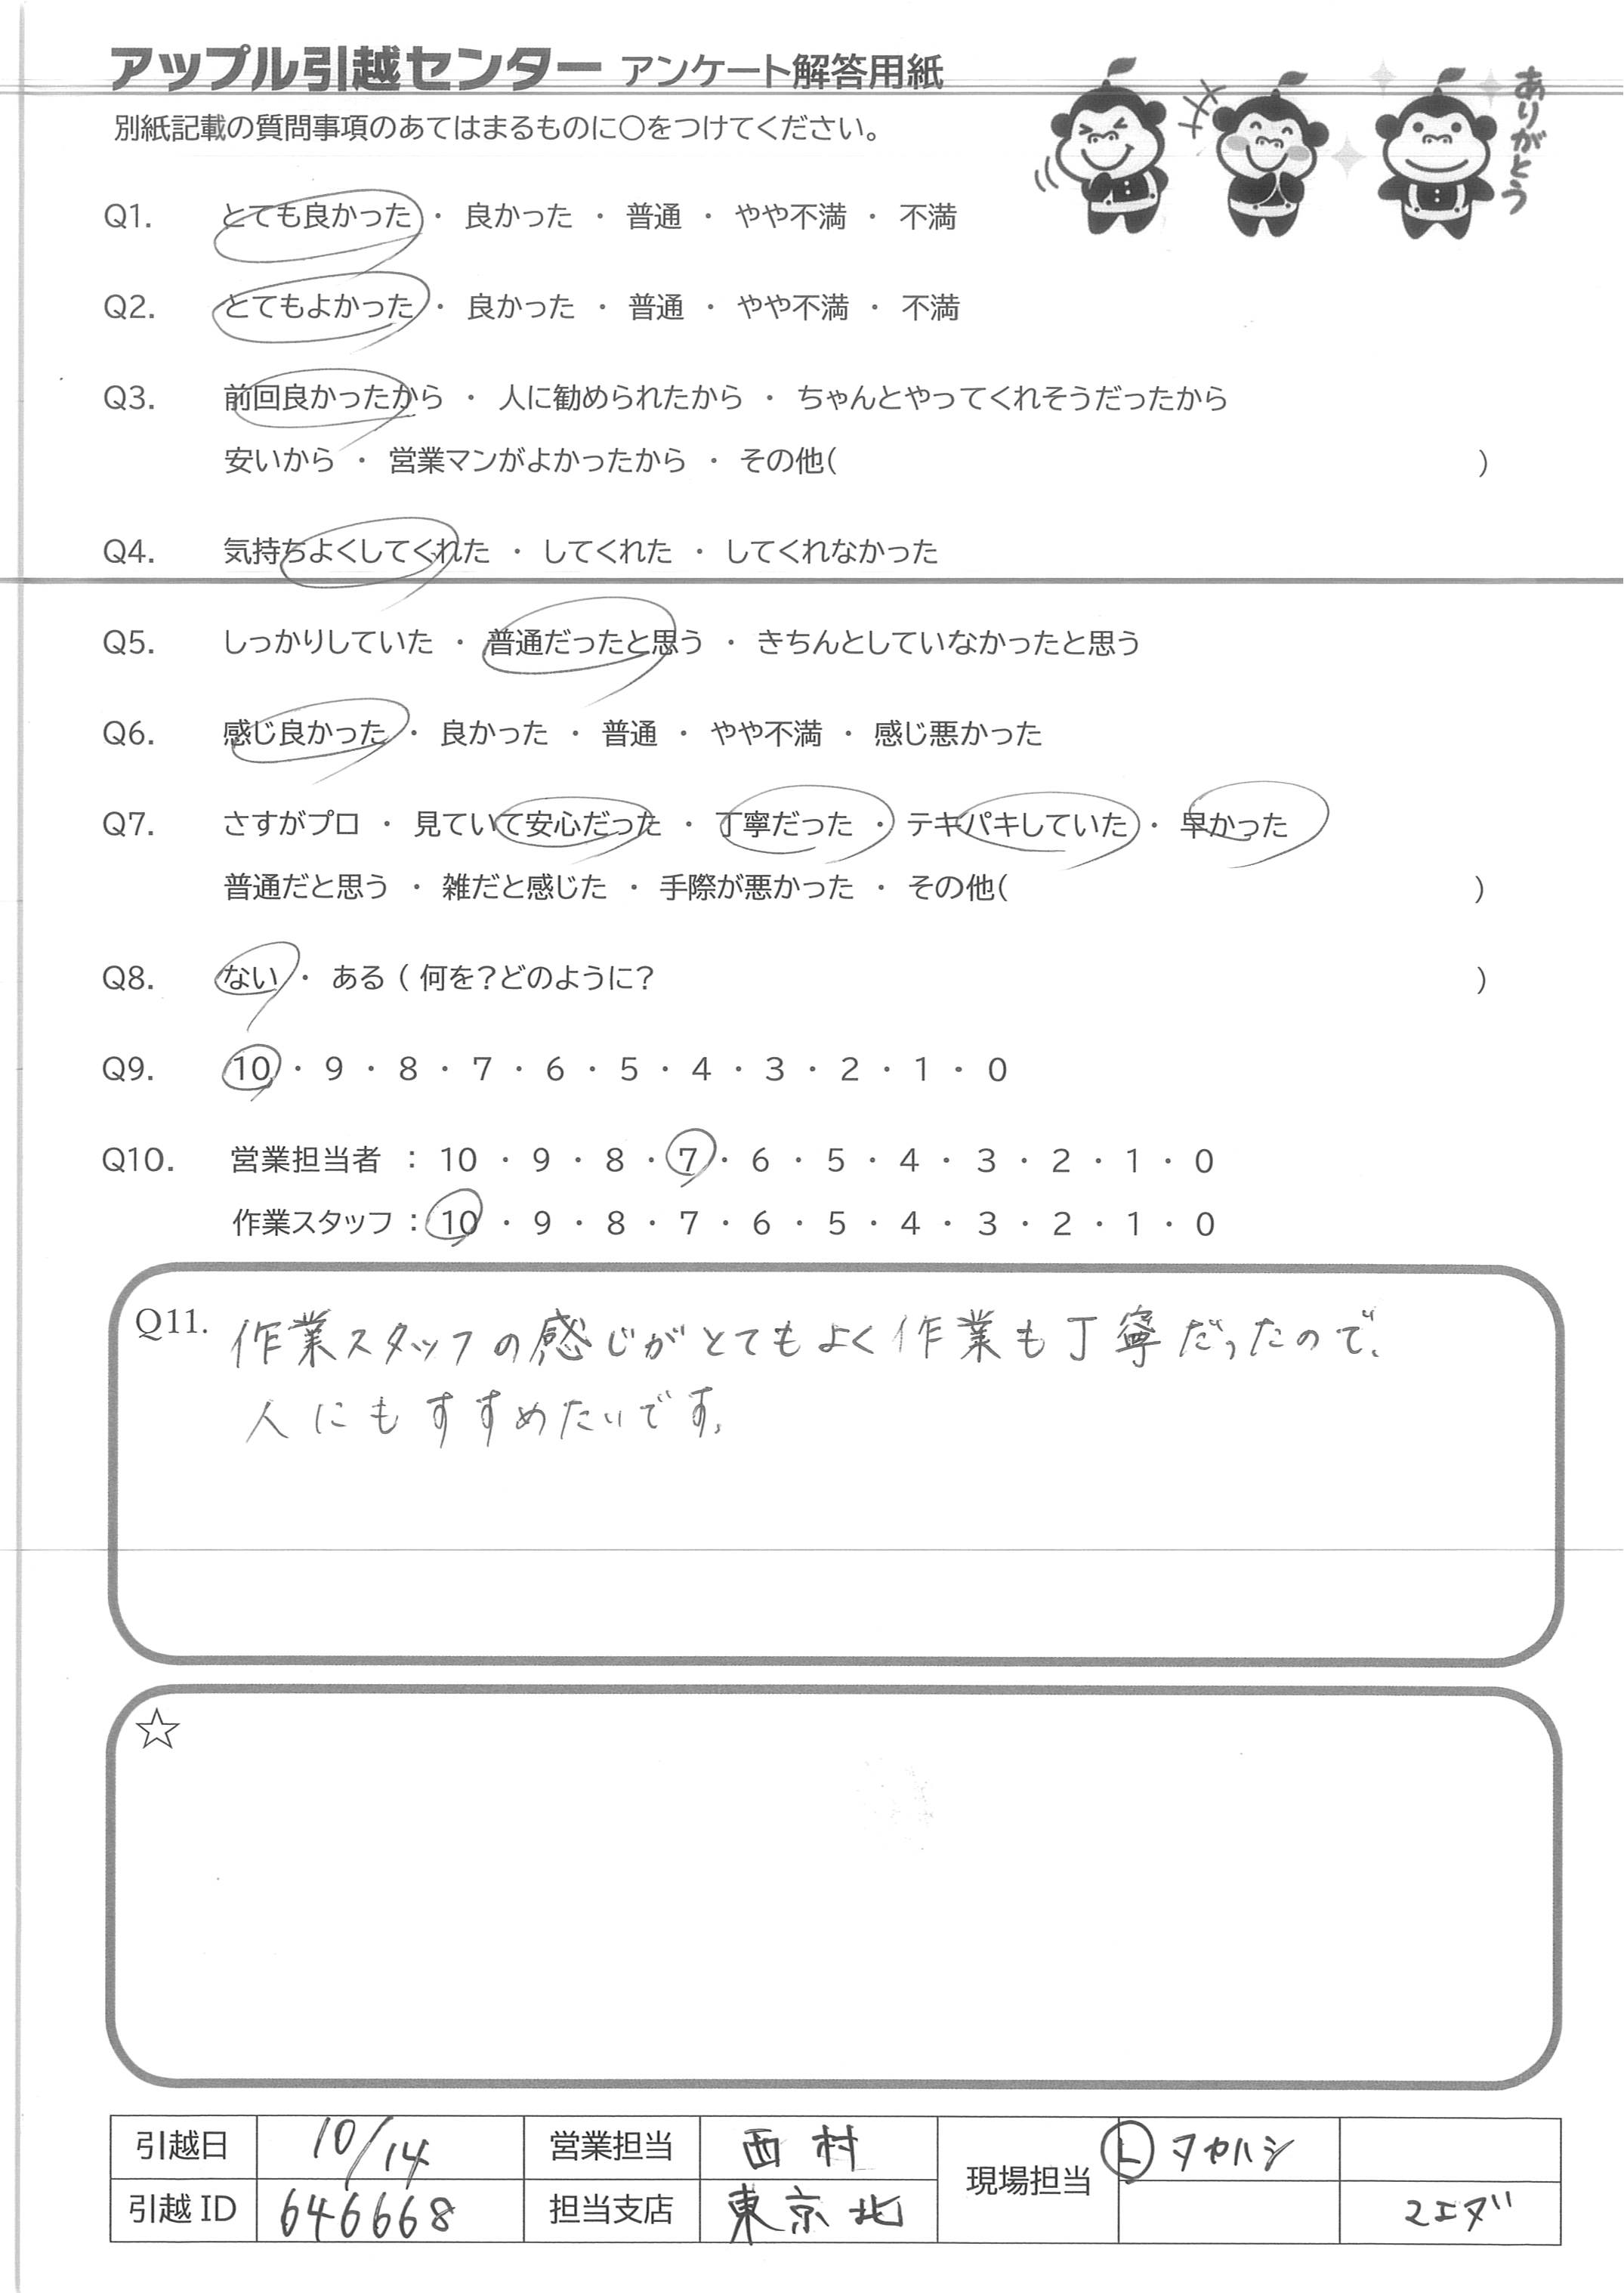 アップル引越センター アンケート解答用紙
ありがとう
別紙記載の質問事項のあてはまるものに○をつけてください。
Q1. とても良かった ・ 良かった ・ 普通 ・ やや不満 ・ 不満
Q2. とてもよかった ・ 良かった ・ 普通 ・ やや不満 ・ 不満
Q3. 前回良かったから ・ 人に勧められたから ・ ちゃんとやってくれそうだったから
安いから ・ 営業マンがよかったから ・ その他( )
Q4. 気持ちよくしてくれた ・ してくれた ・ してくれなかった
Q5. しっかりしていた ・ 普通だったと思う ・ きちんとしていなかったと思う
Q6. 感じ良かった ・ 良かった ・ 普通 ・ やや不満 ・ 感じ悪かった
Q7. さすがプロ ・ 見ていて安心だった ・ 丁寧だった ・ テキパキしていた ・ 早かった
普通だと思う ・ 雑だと感じた ・ 手際が悪かった ・ その他( )
Q8. ない ・ ある ( 何を?どのように? )
Q9. 10 ・ 9 ・ 8 ・ 7 ・ 6 ・ 5 ・ 4 ・ 3 ・ 2 ・ 1 ・ 0
Q10. 営業担当者 : 10 ・ 9 ・ 8 ・ 7 ・ 6 ・ 5 ・ 4 ・ 3 ・ 2 ・ 1 ・ 0
作業スタッフ : 10 ・ 9 ・ 8 ・ 7 ・ 6 ・ 5 ・ 4 ・ 3 ・ 2 ・ 1 ・ 0
Q11. 作業スタッフの感じがとてもよく作業も丁寧だったので、
人にもすすめたいです。
☆
引越日 10/14 営業担当 西村 現場担当 Ⓛ タカハシ
引越ID 646668 担当支店 東京北 マエダ